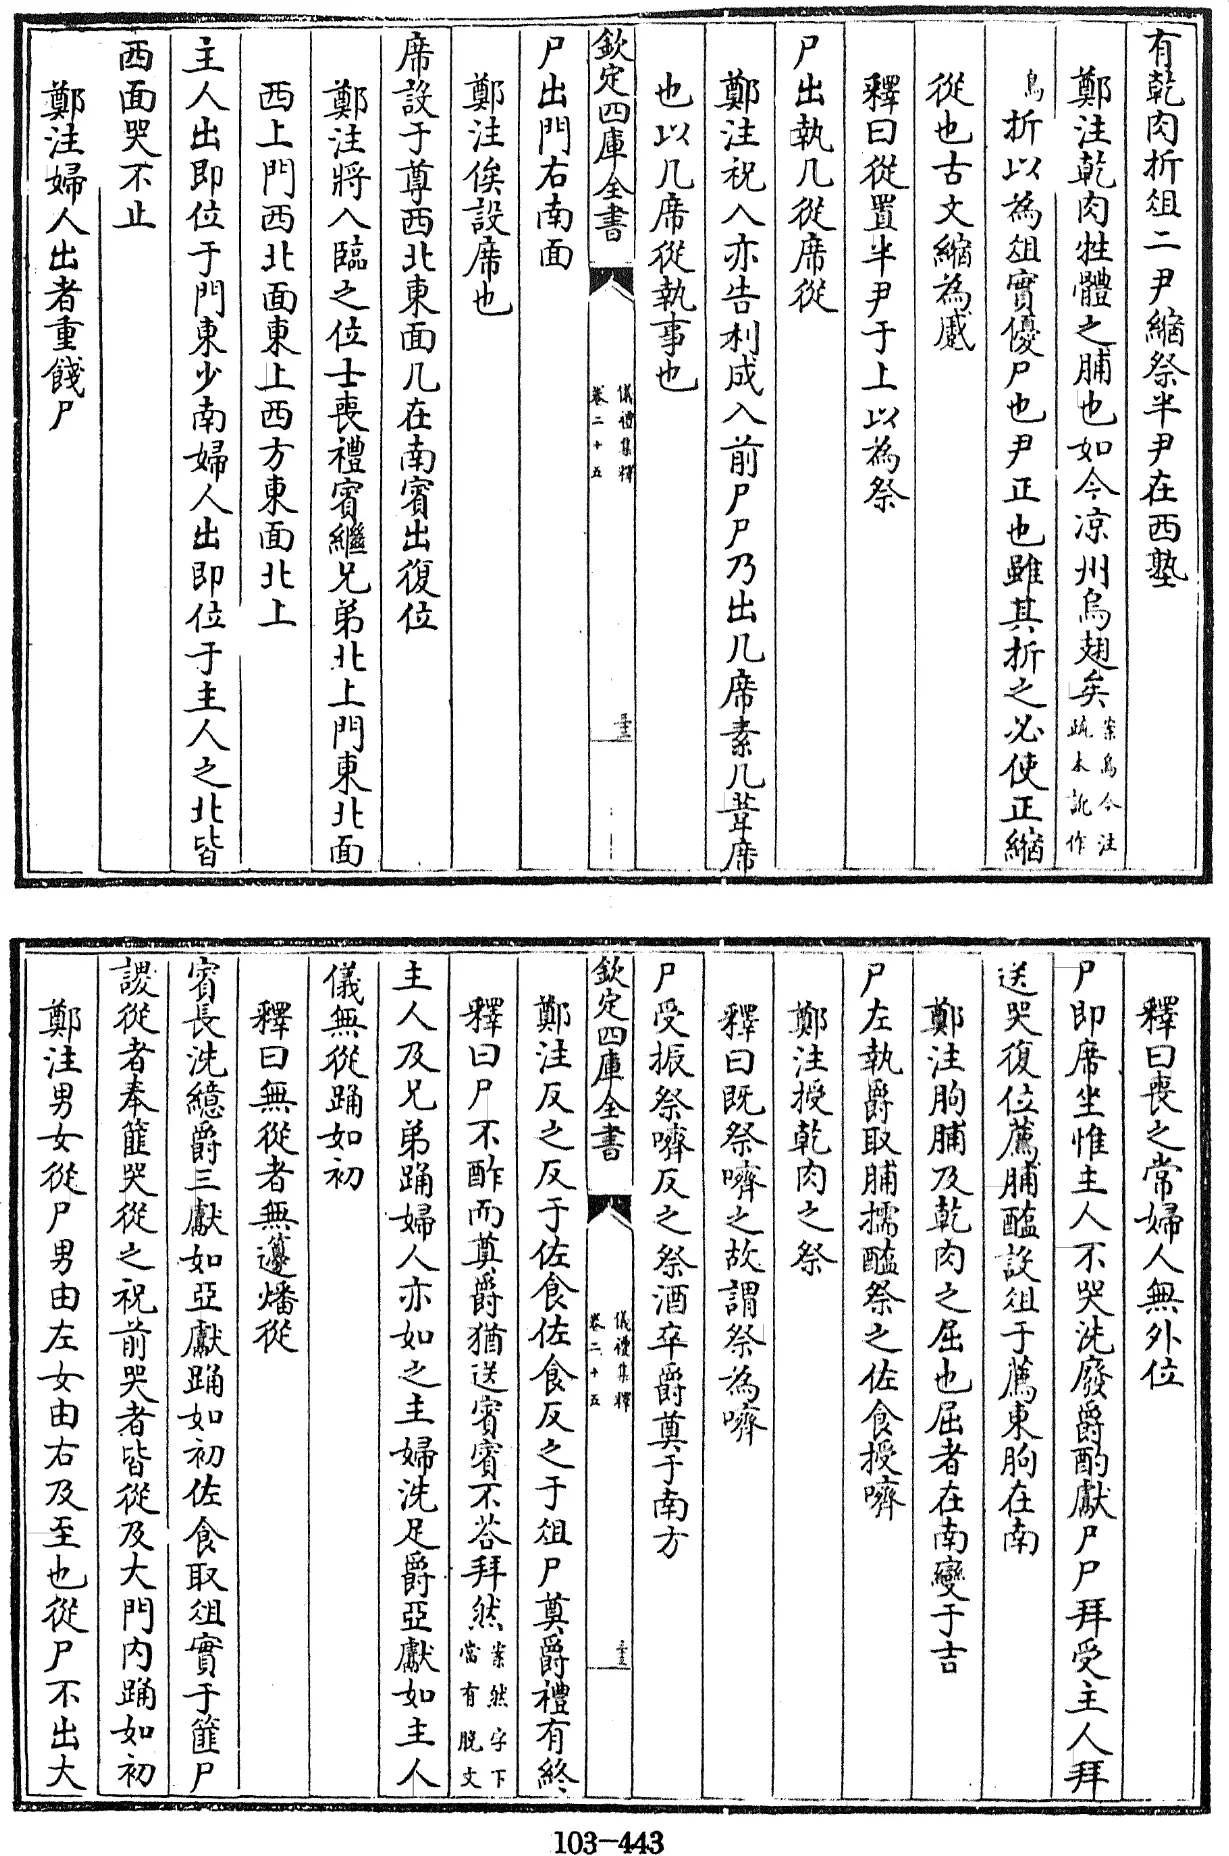 有乾肉折俎二尹縮祭半尹在西塾
鄭注乾肉牲體之脯也如今凉州烏翅矣案烏今注疏本訛作
鳥折以為俎實優尸也尹正也雖其折之必使正縮
從也古文縮為蹙
釋曰從置半尹于上以為祭
尸出執几從席從
鄭注祝入亦告利成入前尸尸乃出几席素几葦席
也以几席從執事也
欽定四庫全書
儀禮集釋
卷二十五
尸出門右南面
鄭注俟設席也
席設于尊西北東面几在南賓出復位
鄭注將入臨之位士喪禮賓繼兄弟北上門東北面
西上門西北面東上西方東面北上
主人出即位于門東少南婦人出即位于主人之北皆
西面哭不止
鄭注婦人出者重餞尸
釋曰喪之常婦人無外位
尸即席坐惟主人不哭洗廢爵酌獻尸尸拜受主人拜
送哭復位薦脯醢設俎于薦東朐在南
鄭注朐脯及乾肉之屈也屈者在南變于吉
尸左執爵取脯擩醢祭之佐食授嚌
鄭注授乾肉之祭
釋曰既祭嚌之故謂祭為嚌
尸受振祭嚌反之祭酒卒爵奠于南方
欽定四庫全書
儀禮集釋
卷二十五
鄭注反之反于佐食佐食反之于俎尸奠爵禮有終
釋曰尸不酢而奠爵猶送賓賓不荅拜然案然字下當有脫文
主人及兄弟踊婦人亦如之主婦洗足爵亞獻如主人
儀無從踊如初
釋曰無從者無籩燔從
賓長洗繶爵三獻如亞獻踊如初佐食取俎實于篚尸
謖從者奉篚哭從之祝前哭者皆從及大門內踊如初
鄭注男女從尸男由左女由右及至也從尸不出大
103-443